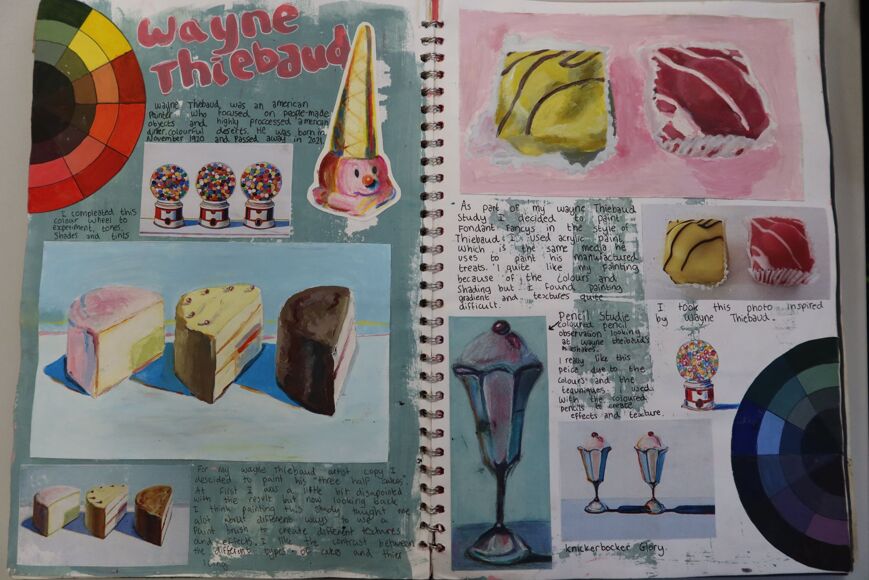 Wayne
Thiebaud
Wayne Thiebaud, was an american
Painter who focused on people-made
objects and highly proccessed american
diner colourful deserts. He was born in
November 1920 and Passed away in 2021
I compleated this
colour wheel to
experiment, tones,
Shades and tints
For my wayne Thiebaud artist copy I
descided to paint his "three half cakes"
At first I was a little bit disapointed
with the result but now looking back
I think painting this study taught me
alot about different ways to use a
Paint brush to create different textures
and effects. I like the contrast between
the different types of cakes and thier
As part of my wayne Thiebaud
Study I decided to paint
Fondant Fancys in the style of
Thiebaud. I used acrylic paint
which is the same media he
uses to paint his manufactured
treats. I quite like my painting
because of the colours and
Shading but I found painting
gradient and textures quite
difficult.
I took this photo inspired
by Wayne Thiebaud.
Pencil Studie
Coloured pencil
observation looking
at wayne thiebauds
I really like this
peice due to the
Colours and the
tequniques used
With the coloured
pencils to create
effects and texture.
Knickerbocker Glory.